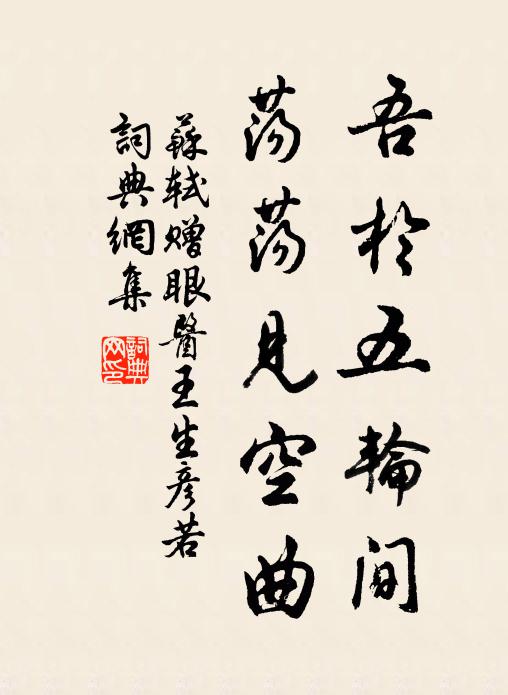 吾於五輪間
蕩蕩見空曲
蘇軾赠眼醫王生彥若
詞典網集
詞典網印